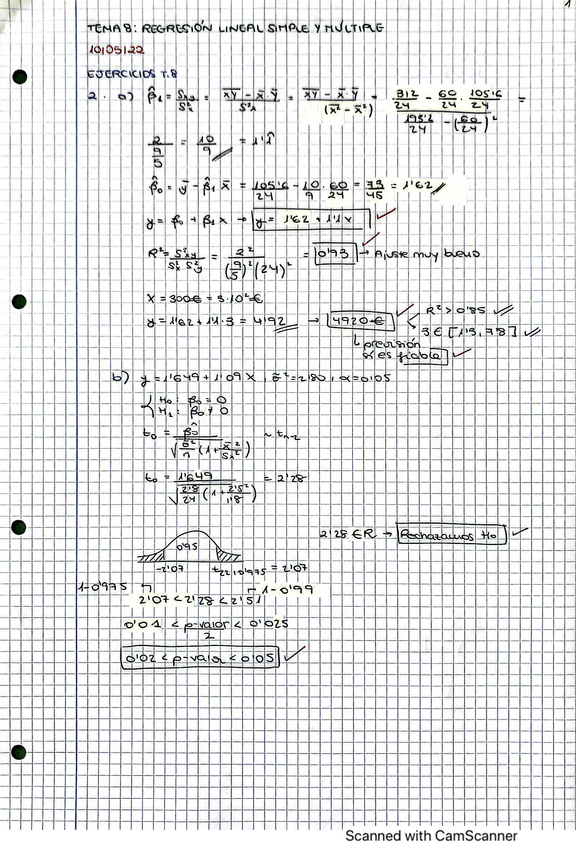 1
TEMA 8: REGRESIÓN LINEAL SIMPLE Y MÚLTIPLE
10/05/22
EJERCICIOS T.8
2. a) β̂₁ = Sxy/S²x = (x̄ȳ - x̄·ȳ)/S²x = (x̄ȳ - x̄·ȳ)/(x̄² - x̄²) = (312/24 - 60/24 · 105'6/24)/(195'2/24 - (60/24)²) =
2/(9/5) = 10/9 = 1'1̂
β̂₀ = ȳ - β̂₁ x̄ = 105'6/24 - 10/9 · 60/24 = 73/45 = 1'62
y = β₀ + β₁x → y = 1'62 + 1'1x
R² = S²xy/S²x S²y = 2²/(9/5)²(24)² = 0'93 → Ajuste muy bueno
x = 300€ = 3·10²€
y = 1'62 + 1'1·3 = 4'92 → 4920€ R² > 0'85
3 ∈ [1'3, 7'8]
↳ previsión
sí es fiable
b) y = 1'649 + 1'09x, σ̂² = 2'80, α = 0'05
H₀: β₀ = 0
H₁: β₀ ≠ 0
t₀ = β̂₀/√(σ̂²/n (1 + x̄²/Sx²)) ~ tn-2
t₀ = 1'649/√(2'8/24 (1 + 2'5²/1'8)) = 2'28
2'28 ∈ R → Rechazamos H₀
0'95
-2'07 t22;0'975 = 2'07
1-0'975 1-0'99
2'07 < 2'28 < 2'51
0'01 < p-valor/2 < 0'025
0'02 < p-valor < 0'05
Scanned with CamScanner